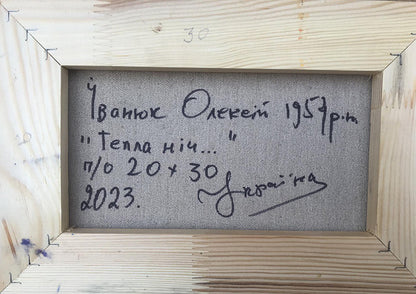 30
Іванюк Олексій 1957р.н.
"Тепла ніч..."
п/о 20 х 30
2023. Україна